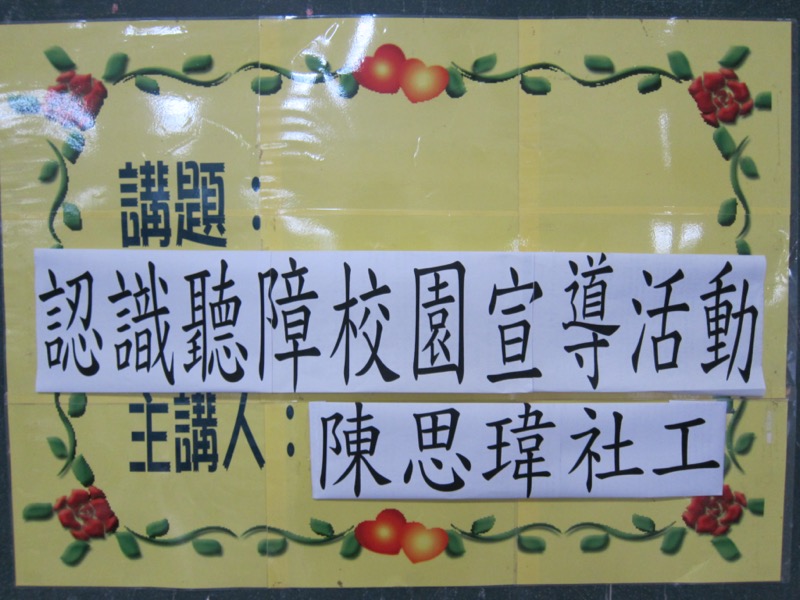 講題：
認識聽障校園宣導活動
主講人：陳思瑋社工